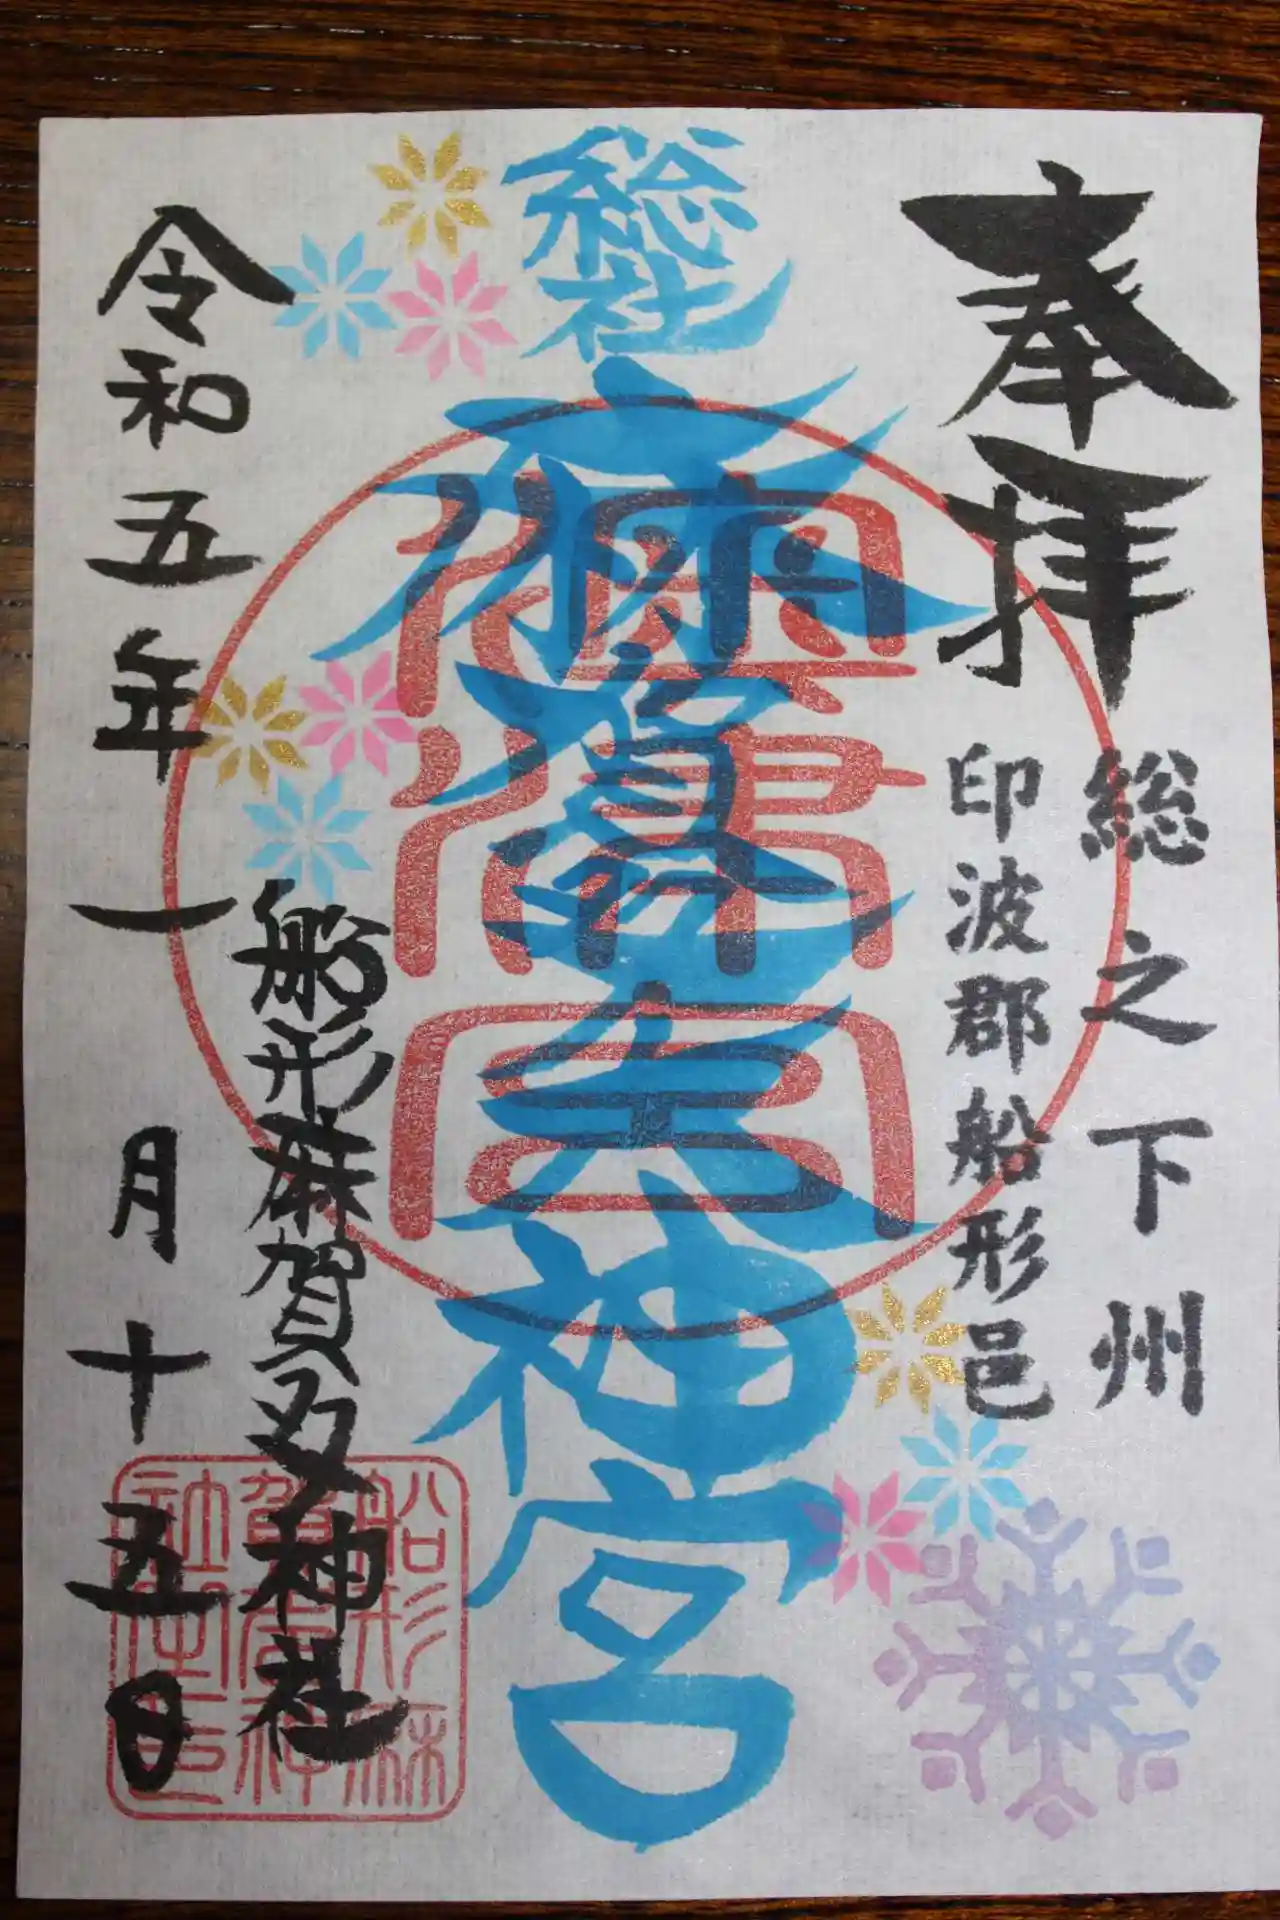 奉拝
総之下州
印波郡船形邑
総社
麻賀多大神宮
船形麻賀多神社
令和五年一月十五日
船形麻
賀多神
社之印